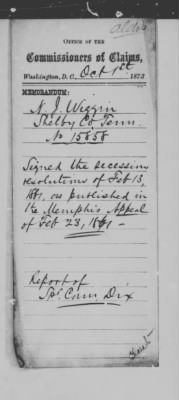 Aldis
OFFICE OF THE
Commissioners of Claims,
Washington, D. C., Oct 1st 1873
MEMORANDUM:
N. J. Wiggin
Shelby Co Tenn.
No 15858
Signed the secession
resolutions of Feb 13,
1861, as published in
the Memphis Appeal
of Feb 23, 1861 —
Report of
Spl Com Dix